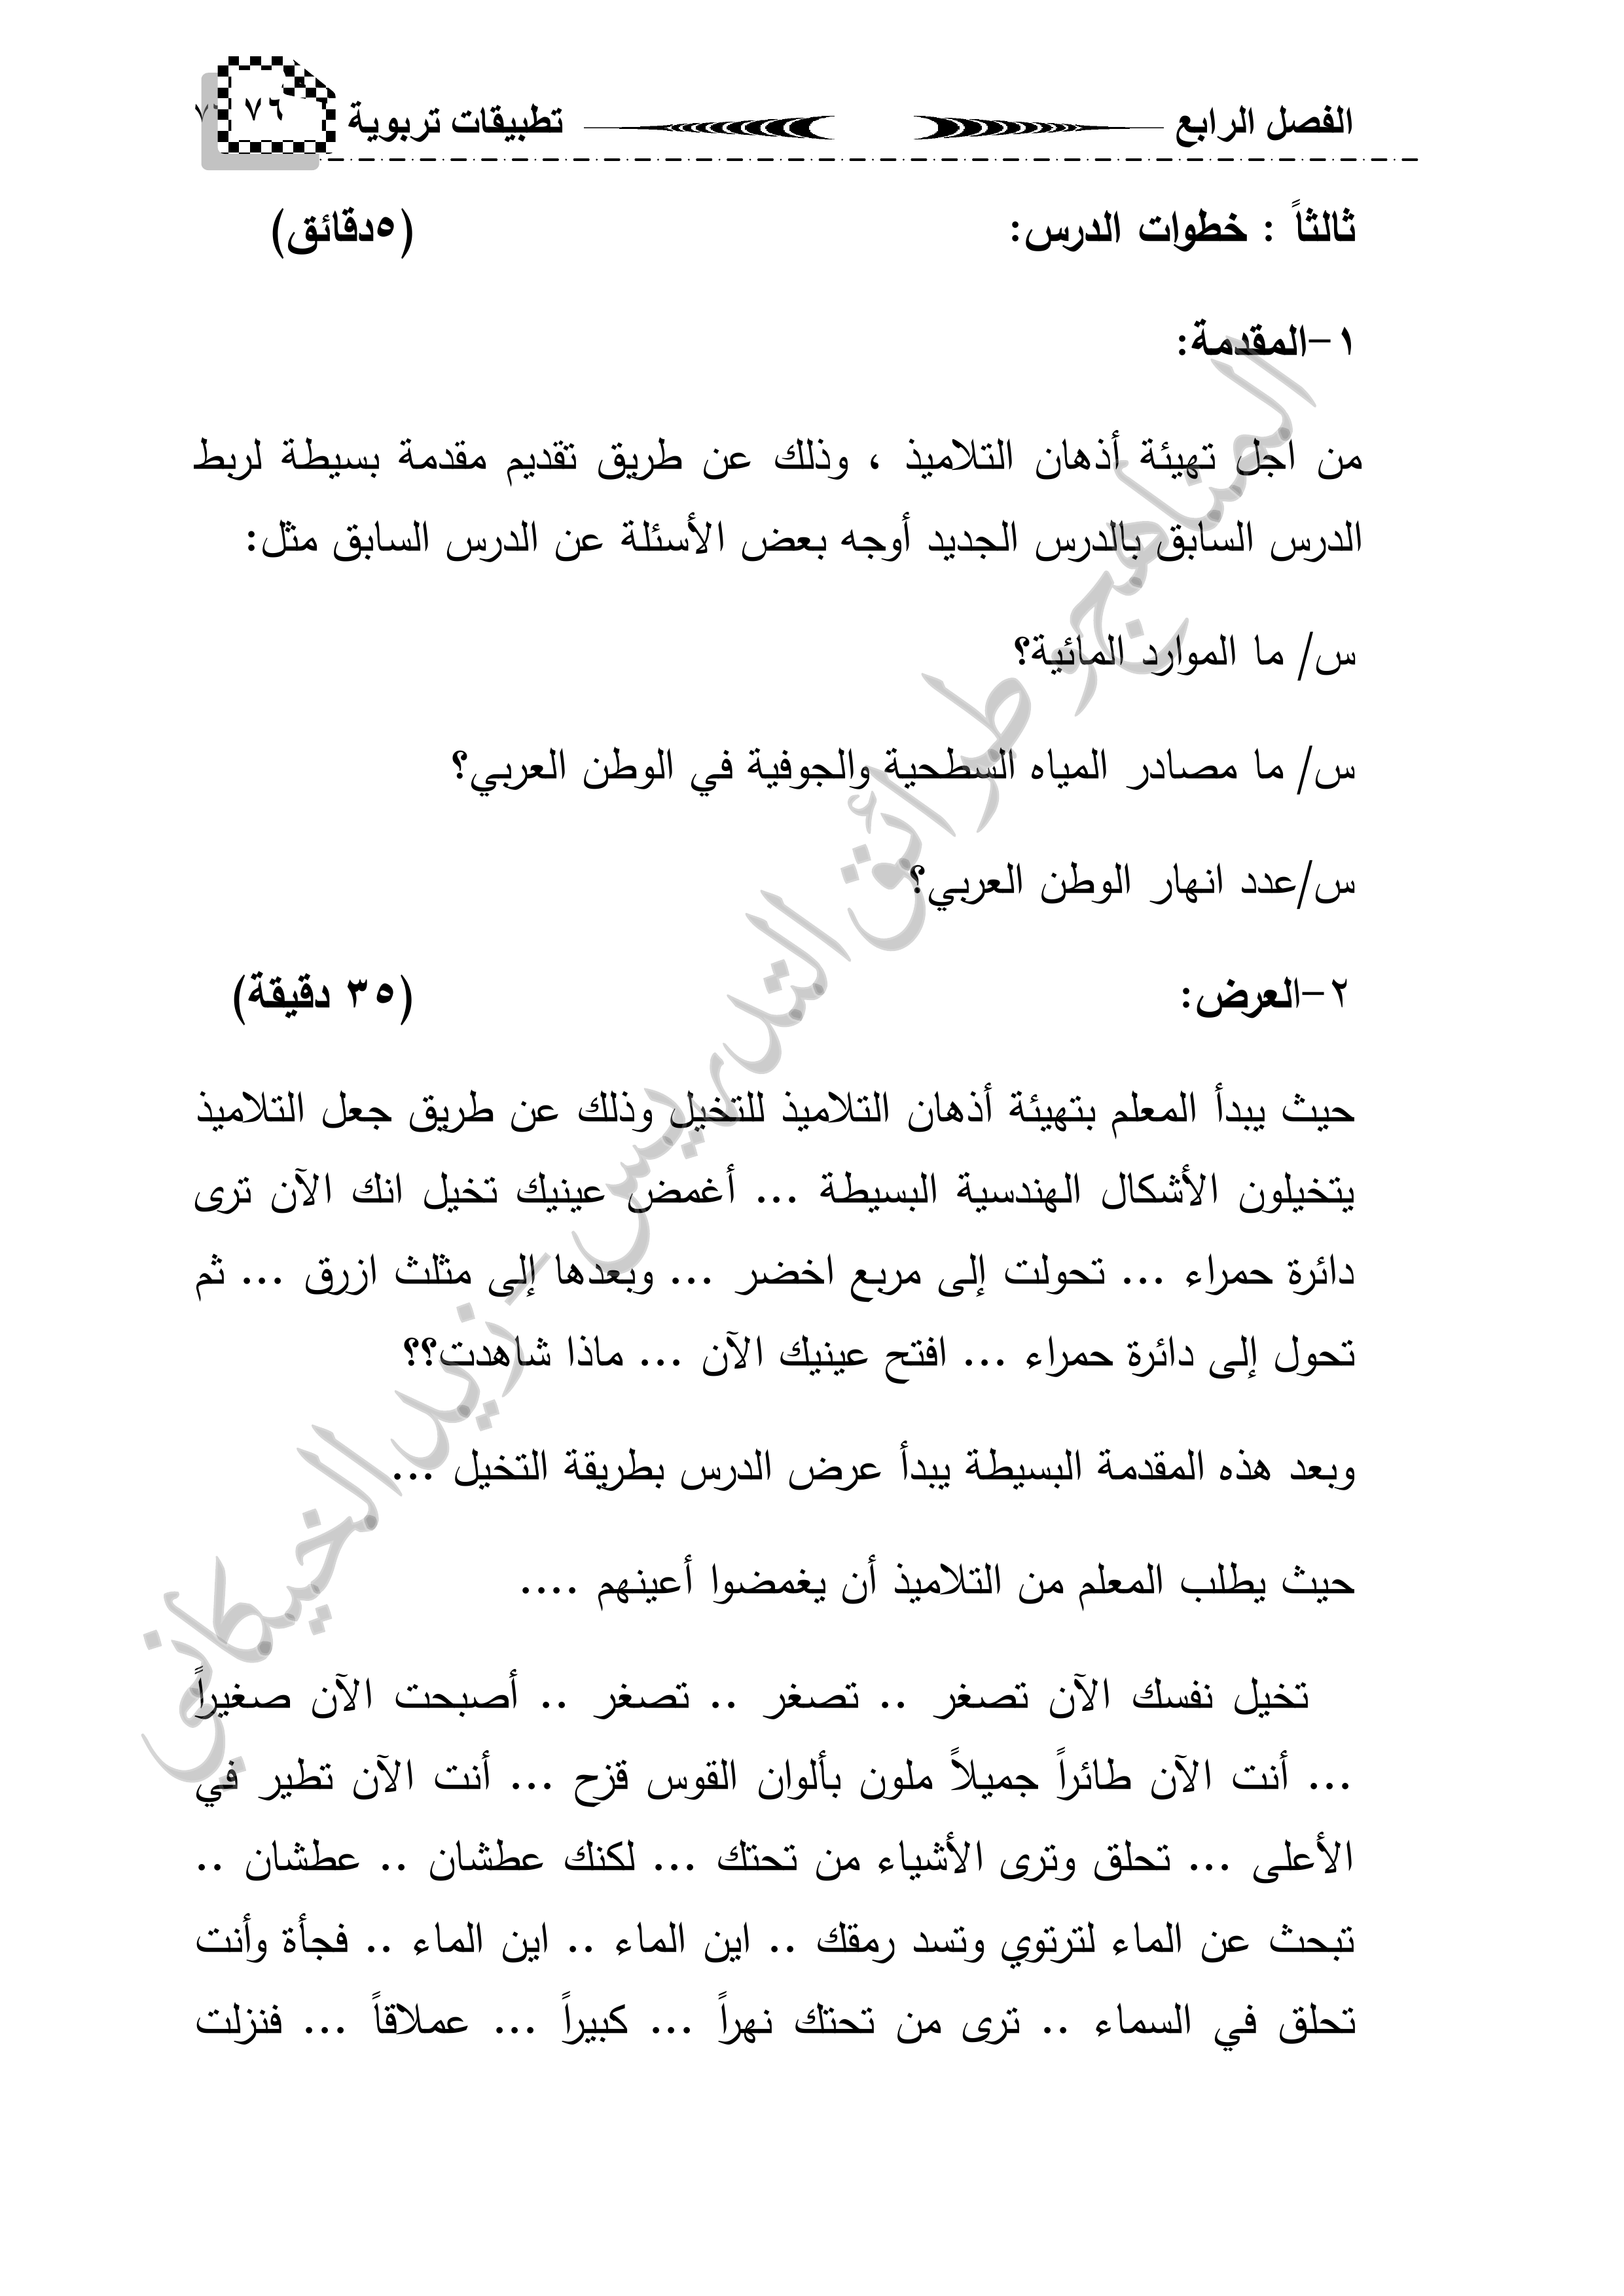 الفصل الرابع
تطبيقات تربوية
٧٦
ثالثاً : خطوات الدرس: (٥دقائق)
١-المقدمة:
من اجل تهيئة أذهان التلاميذ ، وذلك عن طريق تقديم مقدمة بسيطة لربط
الدرس السابق بالدرس الجديد أوجه بعض الأسئلة عن الدرس السابق مثل:
س/ ما الموارد المائية؟
س/ ما مصادر المياه السطحية والجوفية في الوطن العربي؟
س/عدد انهار الوطن العربي؟
٢-العرض: (٣٥ دقيقة)
حيث يبدأ المعلم بتهيئة أذهان التلاميذ للتخيل وذلك عن طريق جعل التلاميذ
يتخيلون الأشكال الهندسية البسيطة ... أغمض عينيك تخيل انك الآن ترى
دائرة حمراء ... تحولت إلى مربع اخضر ... وبعدها إلى مثلث ازرق ... ثم
تحول إلى دائرة حمراء ... افتح عينيك الآن ... ماذا شاهدت؟؟
وبعد هذه المقدمة البسيطة يبدأ عرض الدرس بطريقة التخيل ...
حيث يطلب المعلم من التلاميذ أن يغمضوا أعينهم ....
تخيل نفسك الآن تصغر .. تصغر .. تصغر .. أصبحت الآن صغيراً
... أنت الآن طائراً جميلاً ملون بألوان القوس قزح ... أنت الآن تطير في
الأعلى ... تحلق وترى الأشياء من تحتك ... لكنك عطشان .. عطشان ..
تبحث عن الماء لترتوي وتسد رمقك .. اين الماء .. اين الماء .. فجأة وأنت
تحلق في السماء .. ترى من تحتك نهراً ... كبيراً ... عملاقاً ... فنزلت
المناهج و طرائق التدريس - زيد الخيكاني